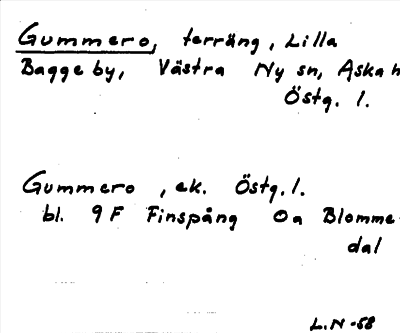 Gummero, terräng, Lilla
Baggeby, Västra Ny sn, Aska h
Östg. l.
Gummero, ek. Östg. l.
bl. 9F Finspång Oa Blomme-
dal
L.N -58